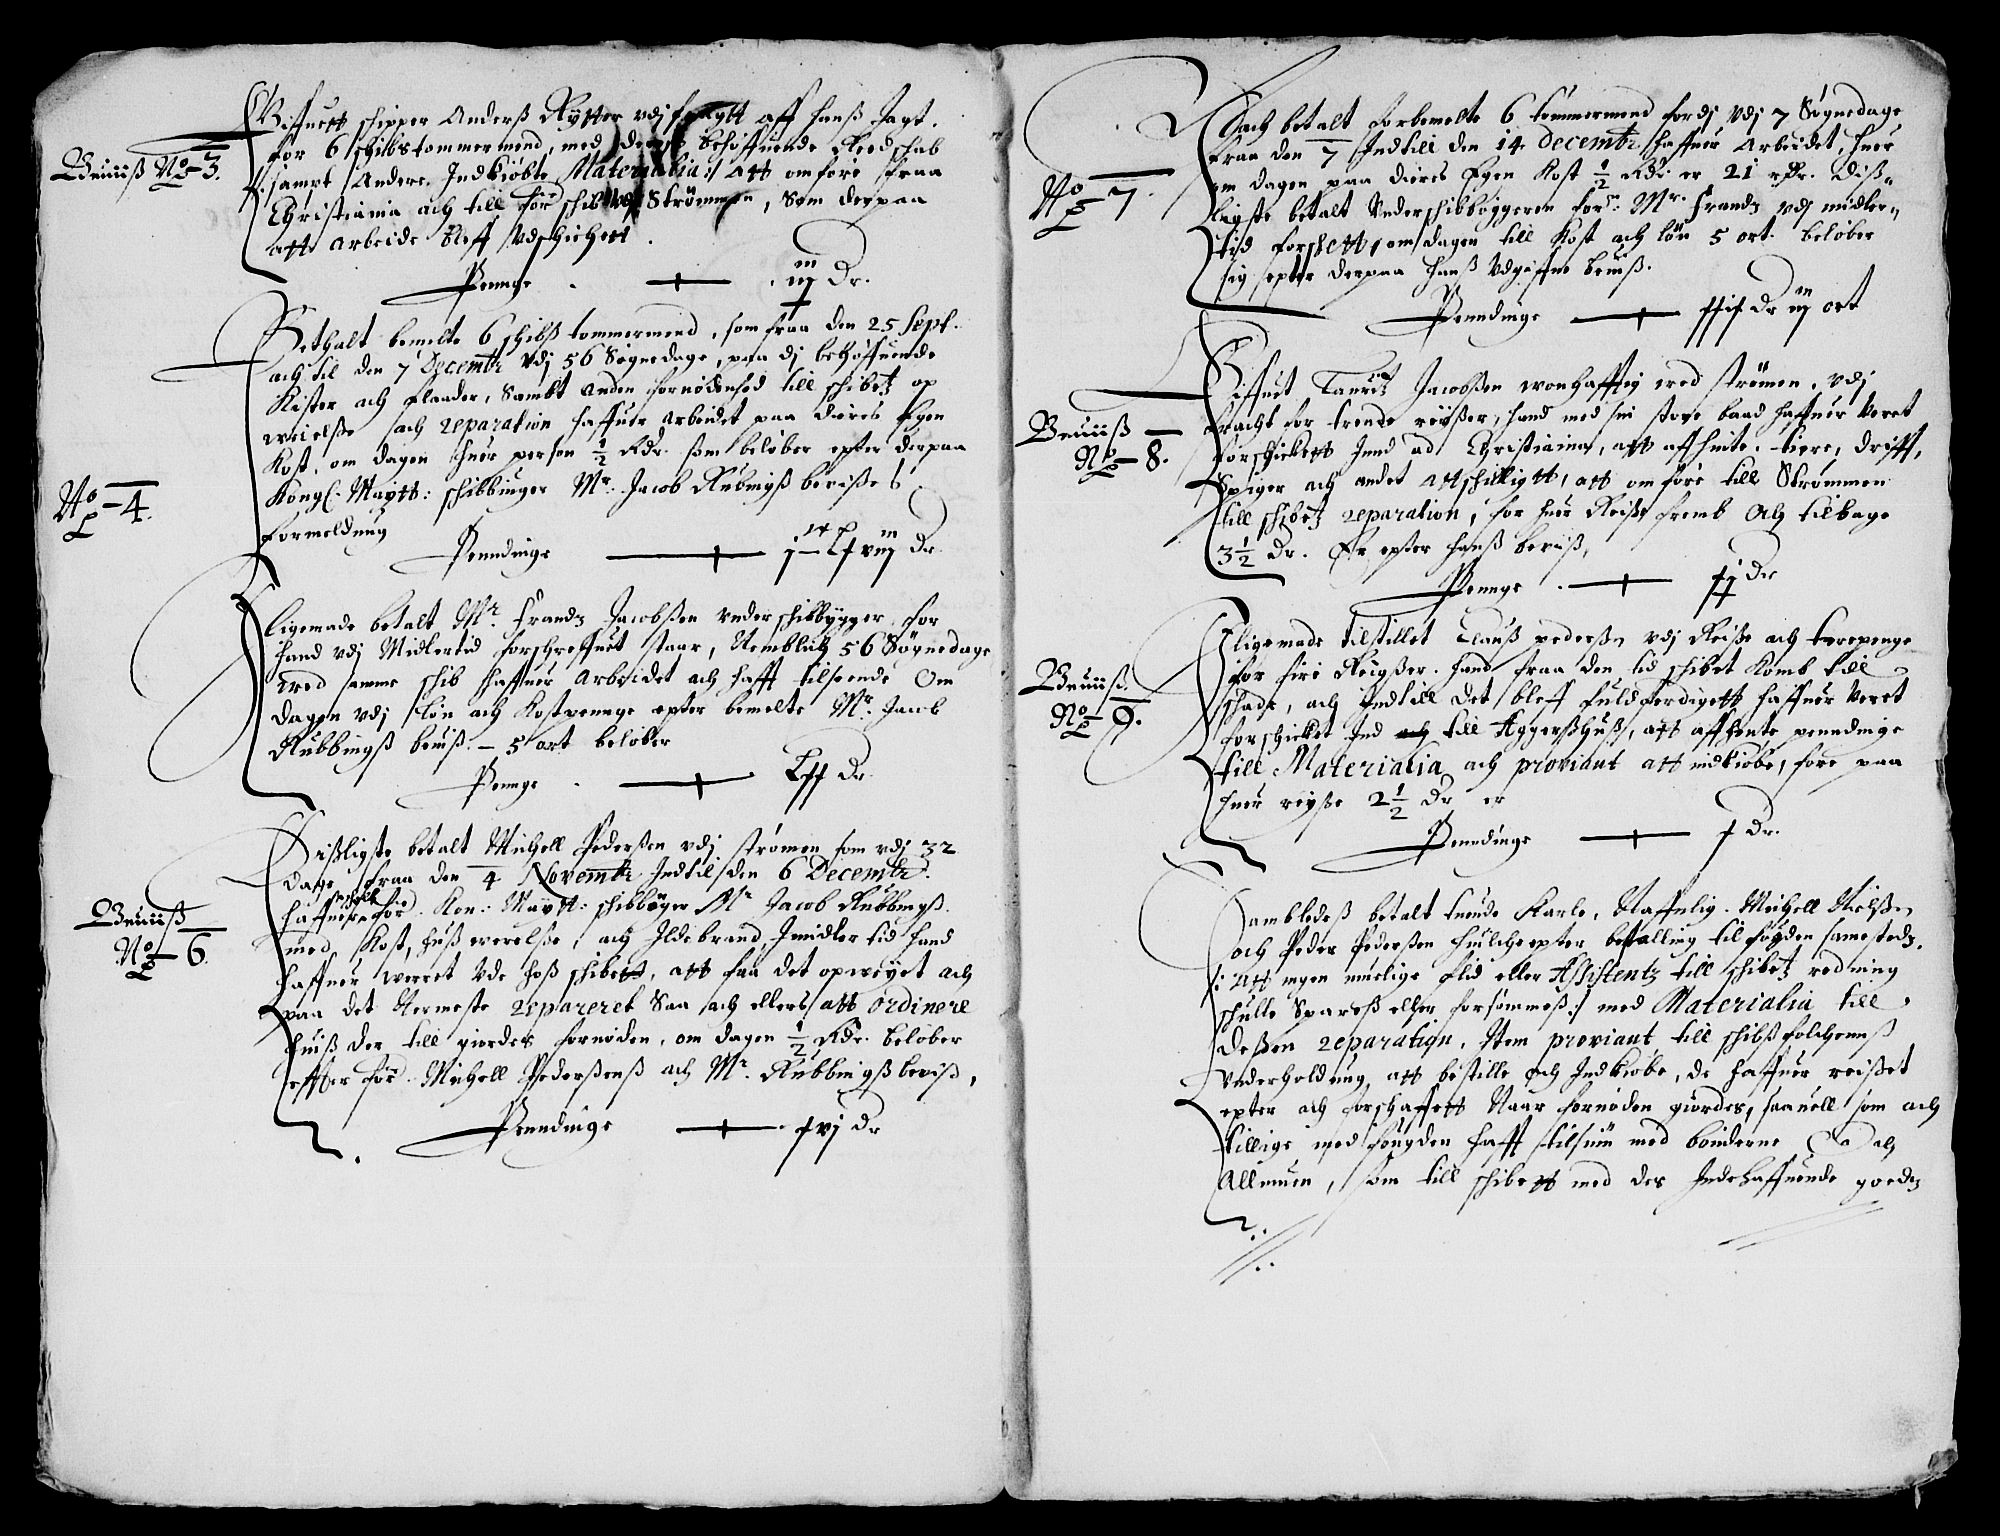 Giffuett schipper Anderß Rytter vdj fragtt aff hanß Jagt.
for 6 schibstommermend, med deris behøffuende Reedschab
Beuiiß No 3.
sampt Andere Indkiøbte Materialia :/ att omføre fraa
Christiania och till for schib ved Strømmen, Som derpaa
att arbeide bleff vdschichett.
Penge iiij Dr.
Bethalt bemelte 6 schibß tommermend, som fraa den 25 Sept.
och til den 7 Decembr vdj 56 Søgnedage, paa dj behøffuende
Kister och flaader, Sambt anden fornødenhed till schibetz op
weielße och reparation haffuer arbeidet paa dieres Egen
Kost, om dagen huer person ½ Rdr. som beløber epter derpaa
No 4.
Kongl. Maytt: schibbinger Mr. Jacob Rubbingß beuißes
formeldning
Penndinge Dr.
Ligemade betalt Mr. Frandz Jacobßen vnderschibbygger, for
hand vdj Midlertid forschreffuet staar, Nemblich 56 Søgnedage
wed samme schib haffuer arbeidet och hafft tilseende Om
dagen vdj løn och Kostpenge epter bemelte Mr. Jacob
Rubbingß beuiß. – 5 ort beløber
Penge Lxx Dr.
Dißligste betalt Michell Pederßen vdj strømen som vdj 32
dage fraa den 4 Novembr Indtil den 6 Decembr.
Beuiiß
haffuer for Kon: Maytt: schibbyger Mr Jacob Rubbingß
No 6.
med Kost, huß werelße, och Ildebrand, Imidlertid hand
haffuer werret vde hoß schibett, att faa det opweyet och
paa det Nermeste repareret Saa och ellers att ordinere
huiß der till giordes fornøden, om dagen ½ Rdr. beløber
effter for: Michell Pederßenß och Mr. Rubbingß beviß,
Penndinge xvj Dr
Noch betalt forbemelte 6 tømmermend fordj vdj 7 Søgnedage
fraa den 7 Indtill den 14 decembr. haffuer Arbeidet, huer
No 7.
om dagen paa dieres Egen Kost ½ Rdr er 21 rdr. Diß-
ligste betalt Vnderschibbyggeren for: Mr. Frandz vdj midler-
tid forschett, om dagen till Kost och løn 5 ort. beløber
sig epter derpaa hanß vdgiffne beuiß.
Penndinge xxix Dr iij ort
Giffuet Lauritz Jacobßen wonhafftig wed strømen, vdj
Beuiiß
fracht for trende reyßer, hand med sin store baad haffuer veret
No 8.
forschickett Innd ad Christiania, att affhente. tiere, driff,
Spiger och andet attschilligtt, att omføre till Strømmen
till schibetz reparation, for huer Reiße fremb och tilbage
3½ Dr. Er epter hanß beuiß,
Penge Dr
Ligemade tilstillet Clauß pederßen vdj Reiße och terepenge
for fire Reigßer. hand fraa den tid schibet komb till
Beuiiß.
schade, och Indtill det bleff fuldferdigett haffuer veret
No 9.
forschicket Ind till Aggerßhuß, att affhente penndinge
till Materialia och proviant att indkiøbe, fore paa
huer reyße 2½ Dr er
Penndinge x Dr.
Sambledeß betalt tuende Karle, Naffnlig. Michell Nielßen
och Peder Pederßen huilche epter befalling til fogden samestedz.
/: att ingen muelige flid eller Assistentz till schibetz redning
schulle Spareß eller forsømmeß :/ med Materialia till
deßen reparation. Item proviant till schibßfolchennß
vnderholdning att bestille och Indkiøbe, de haffuer reißet
epter och forschaffett Naar fornøden giordes, saauell som och
tillige med fougden hafft tilsiun med bønderne och
Allmuen, som till schibett med des Indehaffuende goedz